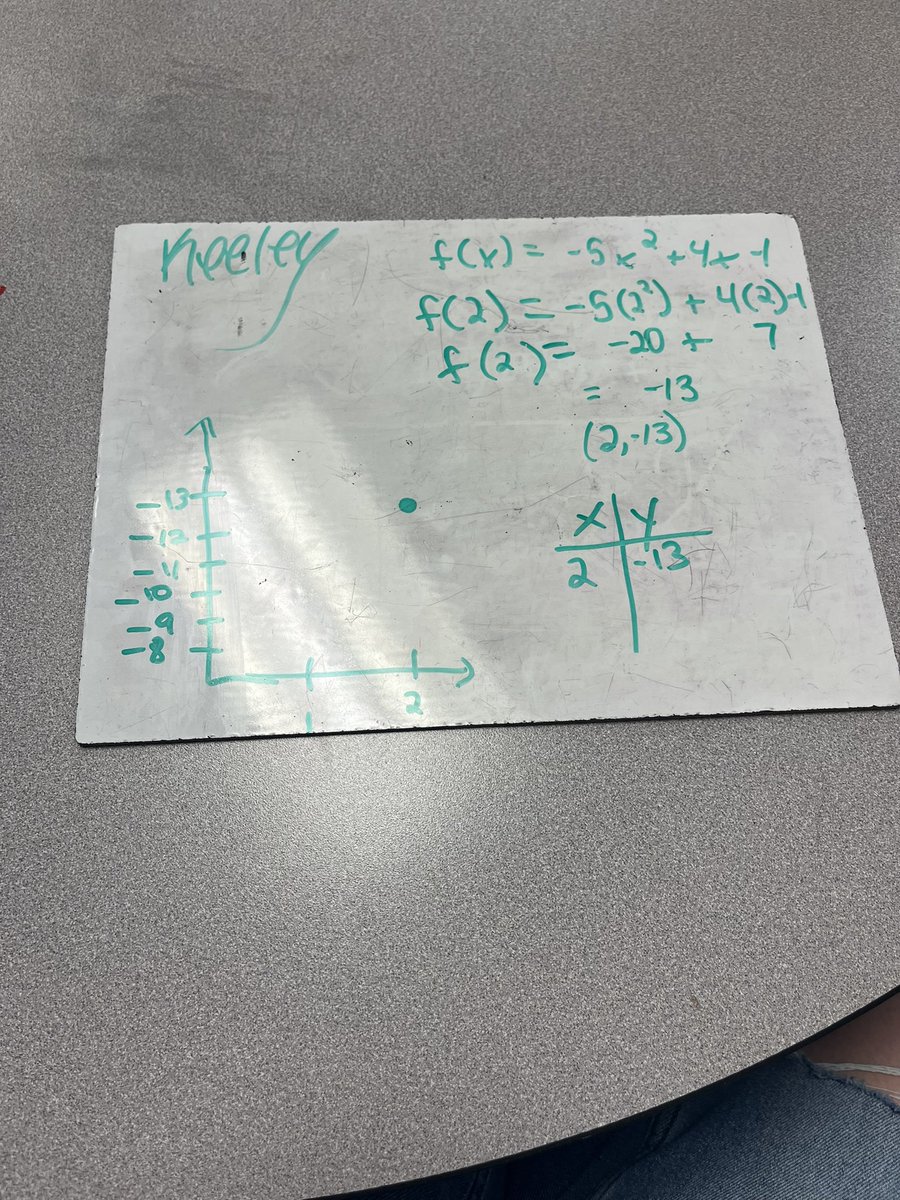 Keeley
f(x) = -5x² + 4x - 1
f(2) = -5(2²) + 4(2)-1
f(2) = -20 + 7
= -13
(2,-13)
x y
2 -13
-13
-12
-11
-10
-9
-8
1 2